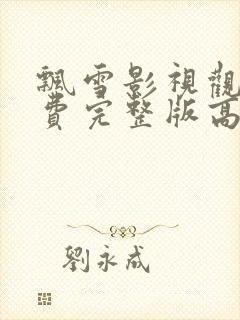 飄雪影視觀
費完整版高
劉永成